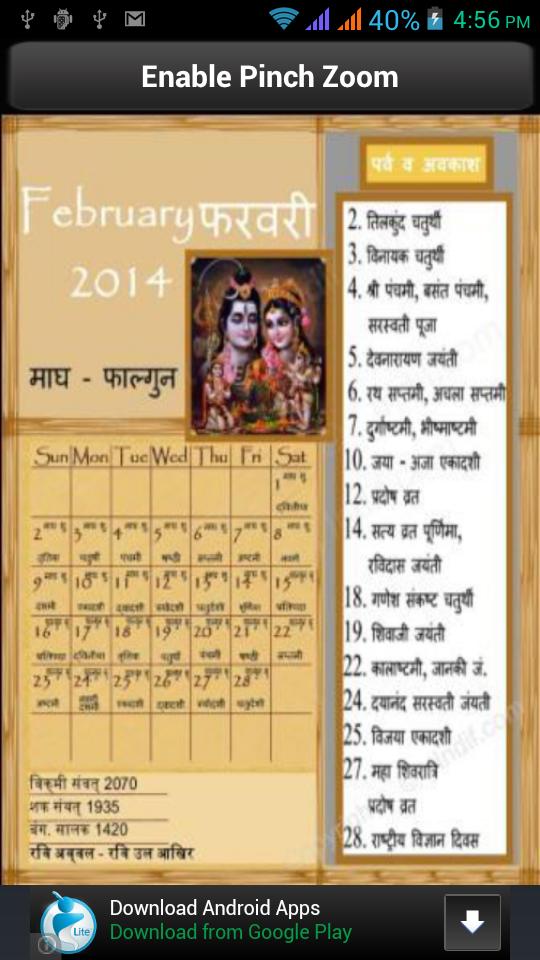 40% 4:56 PM
Enable Pinch Zoom
February फरवरी
2014
माघ - फाल्गुन
Sun Mon Tue Wed Thu Fri Sat
1
2 3 4 5 6 7 8
9 10 11 12 13 14 15
16 17 18 19 20 21 22
23 24 25 26 27 28
विक्रमी संवत् 2070
शक संवत् 1935
बंग. सालक 1420
रवि अव्वल - रवि उल आखिर
पर्व व अवकाश
2. तिलकुंद चतुर्थी
3. विनायक चतुर्थी
4. श्री पंचमी, बसंत पंचमी,
सरस्वती पूजा
5. देवनारायण जयंती
6. रथ सप्तमी, अचला सप्तमी
7. दुर्गाष्टमी, भीष्माष्टमी
10. जया - अजा एकादशी
12. प्रदोष व्रत
14. सत्य व्रत पूर्णिमा,
रविदास जयंती
18. गणेश संकष्ट चतुर्थी
19. शिवाजी जयंती
22. कालाष्टमी, जानकी जं.
24. दयानंद सरस्वती जंयती
25. विजया एकादशी
27. महा शिवरात्रि
प्रदोष व्रत
28. राष्ट्रीय विज्ञान दिवस
Lite
Download Android Apps
Download from Google Play